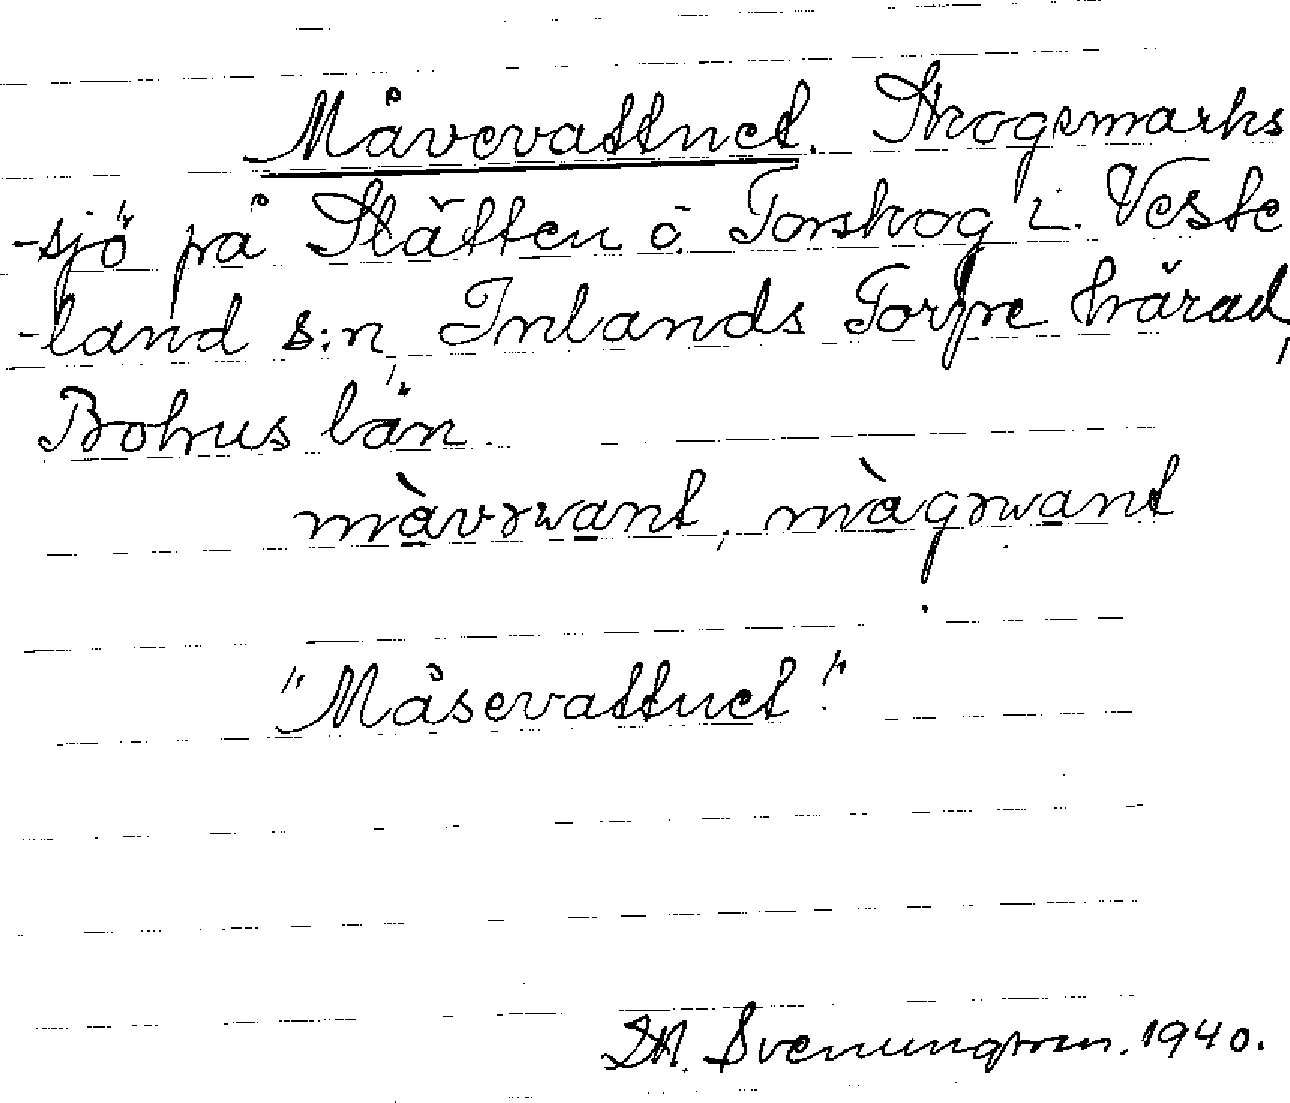 Måvevattnet. Skogsmarks
-sjö på Slätten å Torskog i Veste
-land s:n, Inlands Torpe härad,
Bohus län.
"Måsevattnet"
Svenungson. 1940.